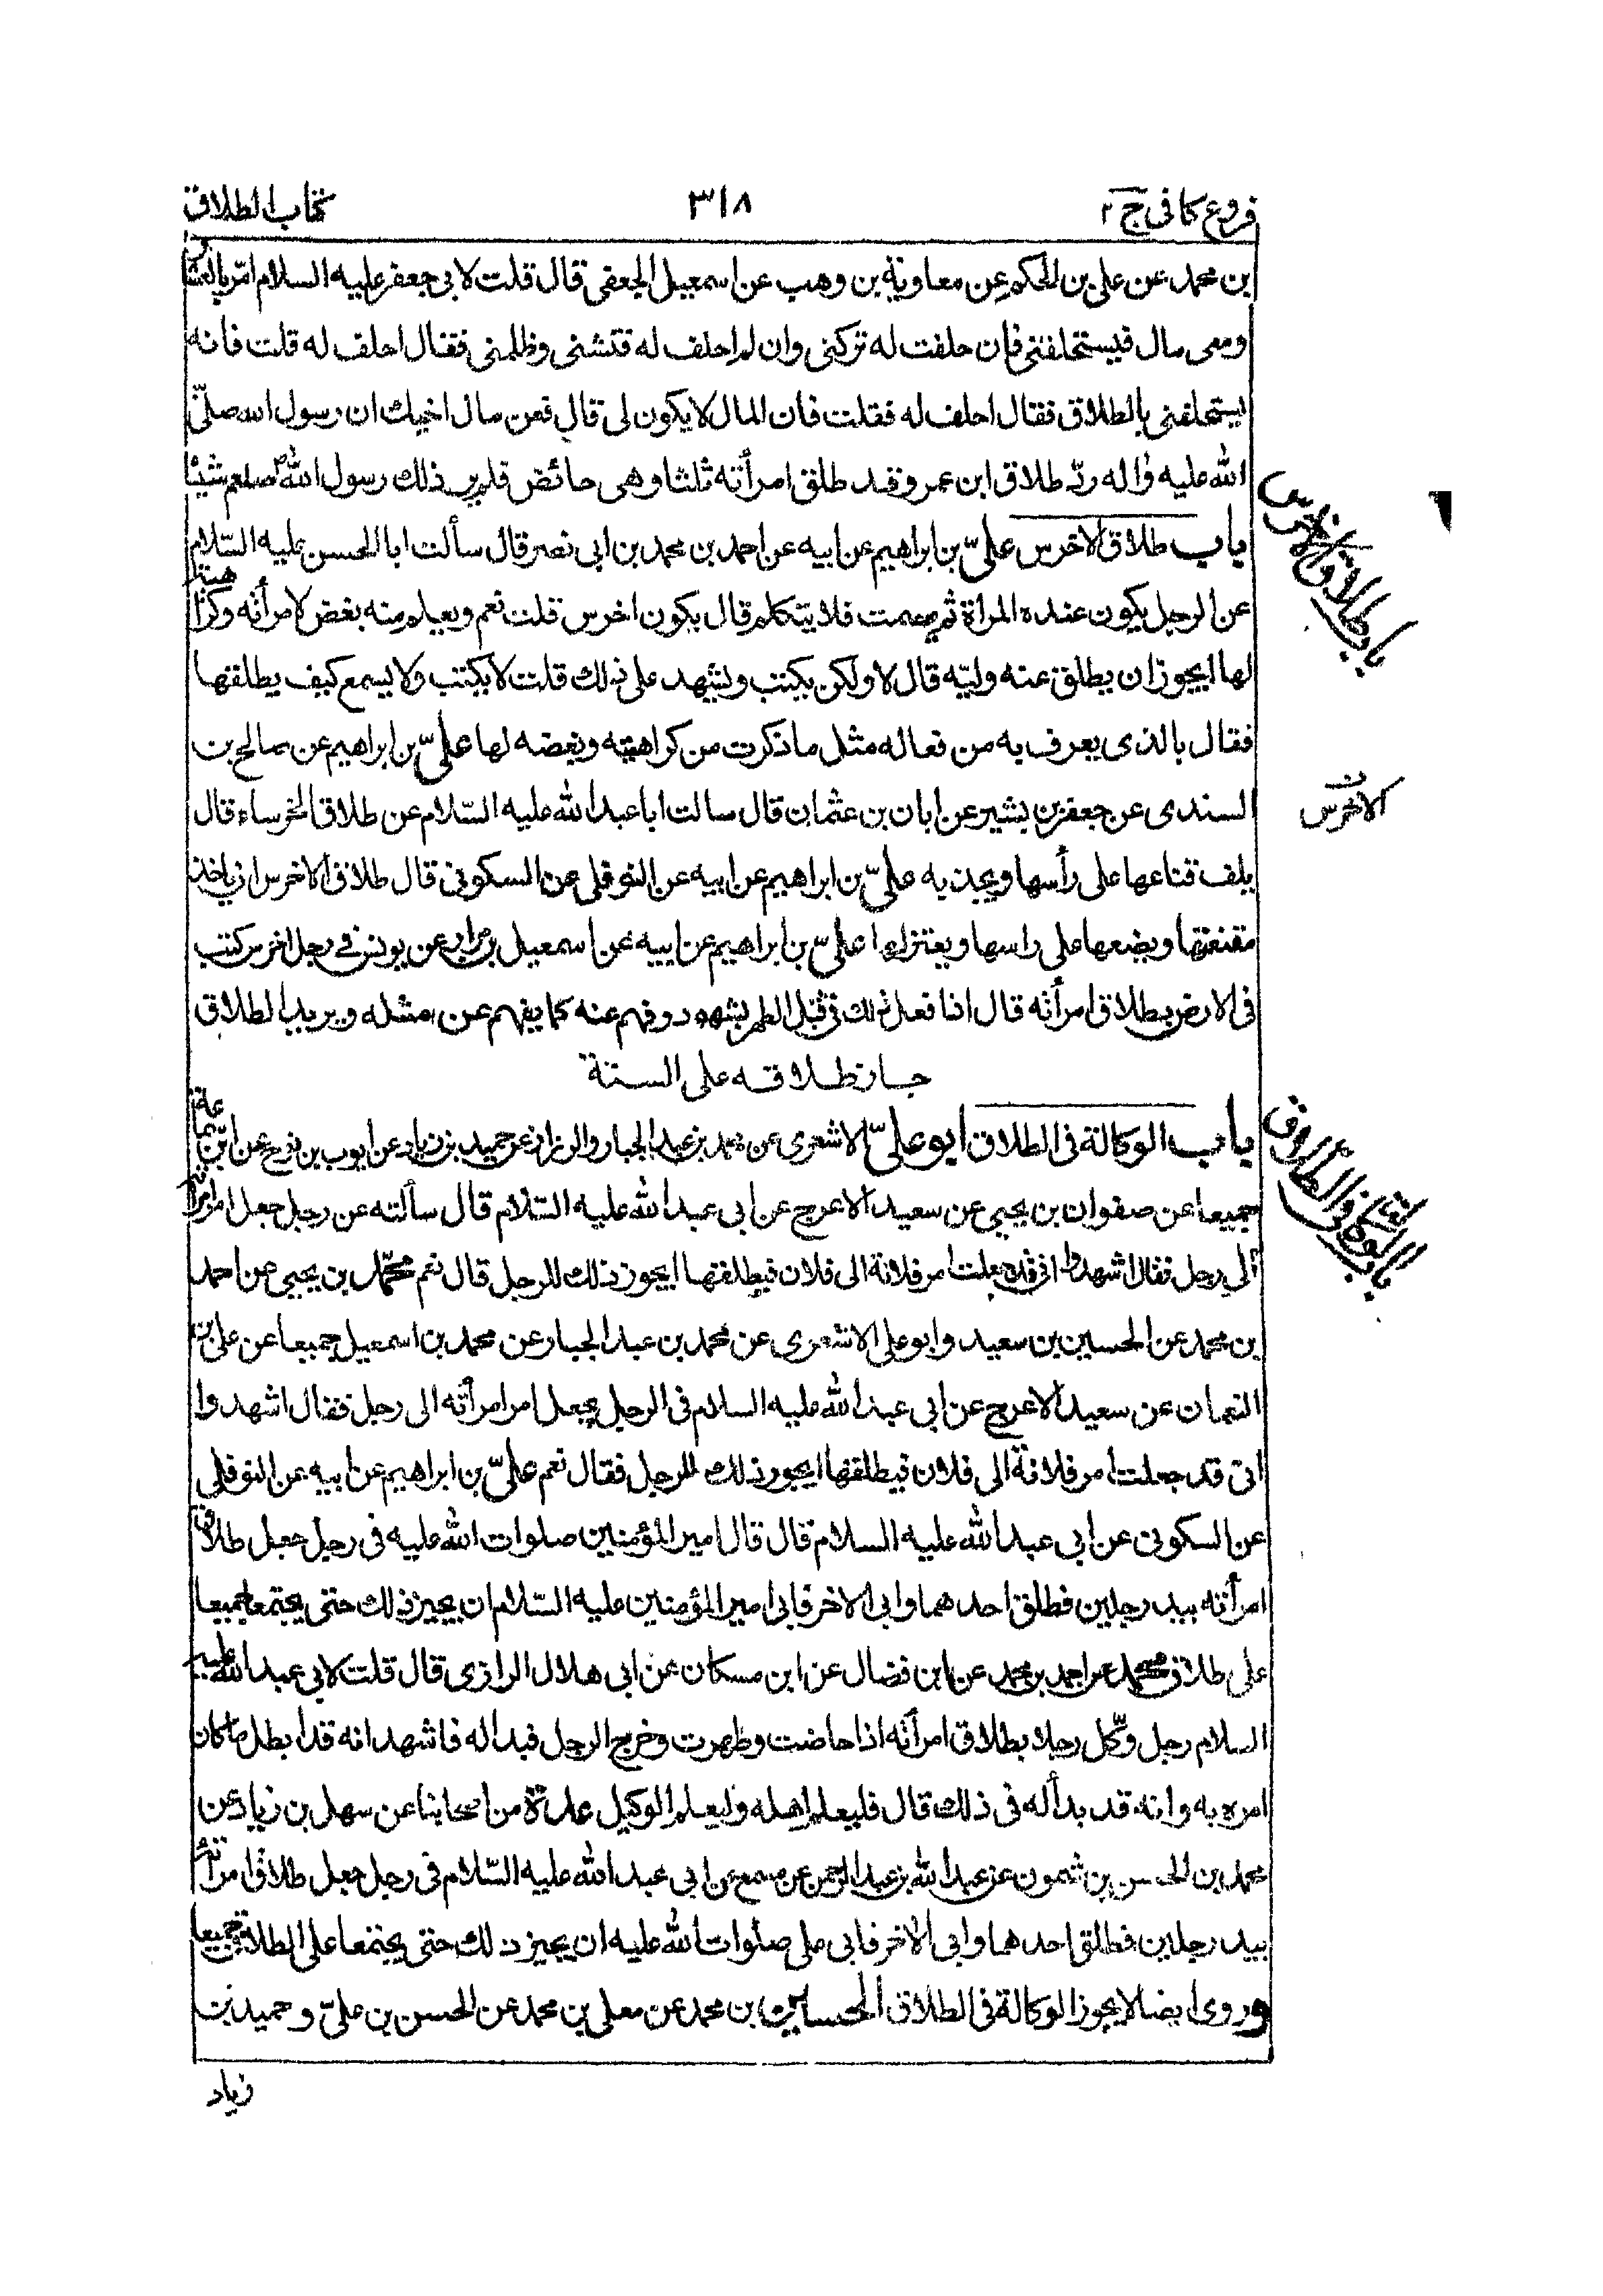 فروع كافى ج ٢
٣١٨
كتاب الطلاق
بن محمد عن على بن الحكم عن معاوية بن وهب عن اسمعيل الجعفى قال قلت لابى جعفر عليه السلام امرّ بالعشار
ومعى مال فيستحلفنى فان حلفت له تركنى وان لم احلف له فتشنى وظلمنى فقال احلف له قلت فانه
يستحلفنى بالطلاق فقال احلف له فقلت فان المال لا يكون لى قال فعن مال اخيك ان رسول الله صلىّ
الله عليه واله ردّ طلاق ابن عمر وقد طلق امرأته ثلثا وهى حائض فلم ير ذلك رسول الله صلعم شيئا
باب طلاق الاخرس علىّ بن ابراهيم عن ابيه عن احمد بن محمد بن ابى نصر قال سألت ابا الحسن عليه السّلام
عن الرجل يكون عنده المرأة ثم يصمت فلا يتكلم قال يكون اخرس قلت نعم ويعلم منه بغض لامرأته وكراهيته
لها ايجوز ان يطلق عنه وليّه قال لا ولكن يكتب ويشهد على ذلك قلت لا يكتب ولا يسمع كيف يطلقها
فقال بالذى يعرف به من فعاله مثل ما ذكرت من كراهيته وبغضه لها علىّ بن ابراهيم عن صالح بن
السندى عن جعفر بن بشير عن ابان بن عثمان قال سالت ابا عبد الله عليه السّلام عن طلاق الخرساء قال
يلف قناعها على رأسها ويجذبه علىّ بن ابراهيم عن ابيه عن النوفلى عن السكونى قال طلاق الاخرس ان ياخذ
مقنعتها ويضعها على راسها ويعتزلها علىّ بن ابراهيم عن ابيه عن اسمعيل بن مرار عن يونس فى رجل اخرس كتب
فى الارض بطلاق امرأته قال اذا فعل ذلك فى قبل الطهر بشهود وفهم عنه كما يفهم عن مثله ويريد الطلاق
جاز طلاقه على السنة
باب الوكالة فى الطلاق ابو علىّ الاشعرى عن محمد بن عبد الجبار والرزاز عن حميد بن زياد عن ايوب بن نوح عن ابن سماعة
جميعا عن صفوان بن يحيى عن سعيد الاعرج عن ابى عبد الله عليه السّلام قال سألته عن رجل جعل امر امرأته
الى رجل فقال اشهدوا انى قد جعلت امر فلانة الى فلان فيطلقها ايجوز ذلك للرجل قال نعم محمّد بن يحيى عن احمد
بن محمد عن الحسين بن سعيد وابو على الاشعرى عن محمد بن عبد الجبار عن محمد بن اسمعيل جميعا عن على بن
النعمان عن سعيد الاعرج عن ابى عبد الله عليه السلام فى الرجل يجعل امر امرأته الى رجل فقال اشهدوا
انى قد جعلت امر فلانة الى فلان فيطلقها ايجوز ذلك للرجل فقال نعم علىّ بن ابراهيم عن ابيه عن النوفلى
عن السكونى عن ابى عبد الله عليه السلام قال قال امير المؤمنين صلوات الله عليه فى رجل جعل طلاق
امرأته بيد رجلين فطلق احدهما وابى الاخر فابى امير المؤمنين عليه السّلام ان يجيز ذلك حتى يجتمعا جميعا
على طلاق محمد عن احمد بن محمد عن ابن فضال عن ابن مسكان عن ابى هلال الرازى قال قلت لابى عبد الله عليه
السلام رجل وكّل رجلا بطلاق امرأته اذا حاضت وطهرت وخرج الرجل فبدا له فاشهد انه قد ابطل ما كان
امره به وانه قد بدأ له فى ذلك قال فليعلم اهله وليعلم الوكيل عدة من اصحابنا عن سهل بن زياد عن
محمد بن الحسن بن شمون عن عبد الله بن عبد الرحمن عن مسمع عن ابى عبد الله عليه السّلام فى رجل جعل طلاق امرأته
بيد رجلين فطلق احدهما وابى الاخر فابى على صلوات الله عليه ان يجيز ذلك حتى يجتمعا على الطلاق جميعا
وروى ايضا لا يجوز الوكالة فى الطلاق الحسين بن محمد عن معلى بن محمد عن الحسن بن علىّ وحميد بن
زياد
باب طلاق الاخرس
الاخرس
باب الوكالة فى الطلاق